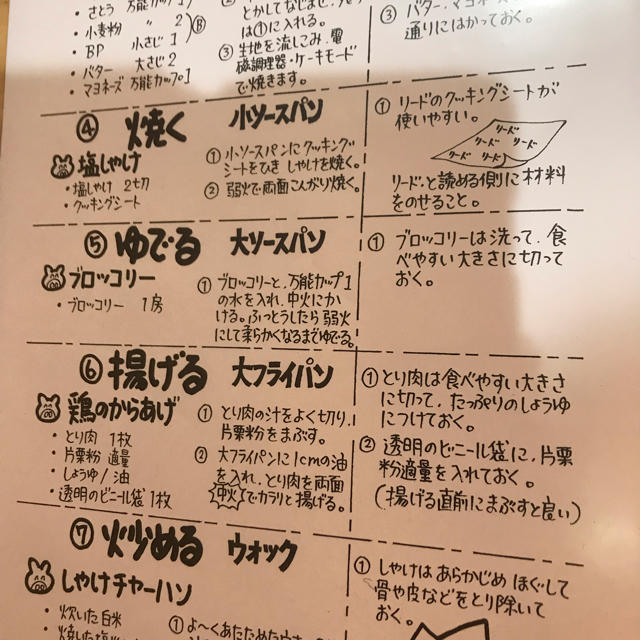 ・さとう 万能カップ1
・小麦粉 〃 2
・BP 小さじ1
・バター 大さじ2
・マヨネーズ 万能カップ1
Ⓑ
は①に入れる。
③ 生地を流しこみ、電
磁調理器・ケーキモード
で焼きます。
③ バター、マヨネーズ
通りにはかっておく。
④ 焼く 小ソースパン
塩しゃけ
・塩しゃけ 2切
・クッキングシート
① 小ソースパンにクッキング
シートをひき しゃけを焼く。
② 弱火で両面こんがり焼く。
① リードのクッキングシートが
使いやすい。
リード リード
リード リード
リード リード
リード・と読める側に材料
をのせること。
⑤ ゆでる 大ソースパン
ブロッコリー
・ブロッコリー 1房
① ブロッコリーと、万能カップ1
の水を入れ、中火にか
ける。ふっとうしたら弱火
にして柔らかくなるまでゆでる。
① ブロッコリーは洗って、食
べやすい大きさに切って
おく。
⑥ 揚げる 大フライパン
鶏のからあげ
・とり肉 1枚
・片栗粉 適量
・しょうゆ/油
・透明のビニール袋1枚
① とり肉の汁をよく切り、
片栗粉をまぶす。
② 大フライパンに1cmの油
を入れ、とり肉を両面
中火でカラリと揚げる。
① とり肉は食べやすい大きさ
に切って、たっぷりのしょうゆ
につけておく。
② 透明のビニール袋に、片栗
粉適量を入れておく。
(揚げる直前にまぶすと良い)
⑦ 炒める ウォック
しゃけチャーハン
・炊いた白米
① よ〜くあたためた
① しゃけはあらかじめ ほぐして
骨や皮などをとり除いて
おく。